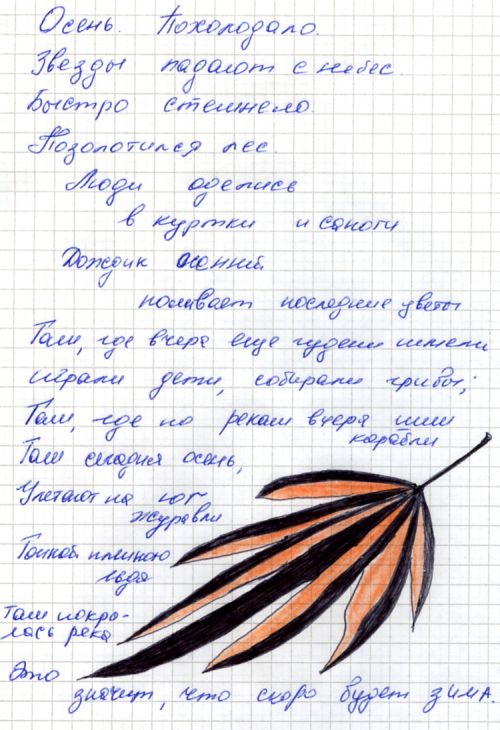 Осень. Похолодало.
Звезды падают с небес.
Быстро стемнело.
Позолотился лес.
Люди оделись
в куртки и сапоги
Дождик осенний
поливает последние цветы
Там, где вчера еще гудели шмели
играли дети, собирали грибы;
Там, где по рекам вчера шли
карабли
Там сегодня осень,
Улетают на юг
журавли
Тонкой пленкою
льда
там покры-
лась река
Это
значит, что скоро будет зима.